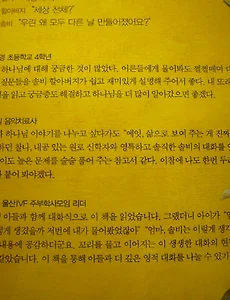 할아버지 "세상 전체?"
솔비 "우린 왜 모두 다른 날 만들어졌어요?"
초등학교 4학년
하나님에 대해 궁금한 것이 많았다. 어른들에게 물어봐도
솔비 할아버지가 쉽고 재미있게 설명해 주어서 좋다. 내 또래
을 읽고 궁금증도 해결하고 하나님을 더 많이 알아갔으면 좋겠다.
음악치료사
하나님 이야기를 나누고 싶다가도 "에잇, 삶으로 보여 주는 게 진짜
찰나, 내공 있는 원로 신학자의 영특하고 솔직한 솔비의 대화를 엿
이도 높은 문제를 술술 풀어 주는 참고서 같다. 이참에 나도 한번 두근
붙어 봐야겠다.
울산IVF 주부학사모임 리더
아들과 함께 대화식으로 이 책을 읽었습니다. 그랬더니 아이가
게 생겼을까 저번에 내가 물어봤었잖아" "엄마, 솔비는 이렇게
내용에 공감하더군요. 꼬리를 물고 이어지는 이 생생한 대화의
었습니다. 이 책을 통해 아들과 더 깊은 영적 대화를 나눌 수 있